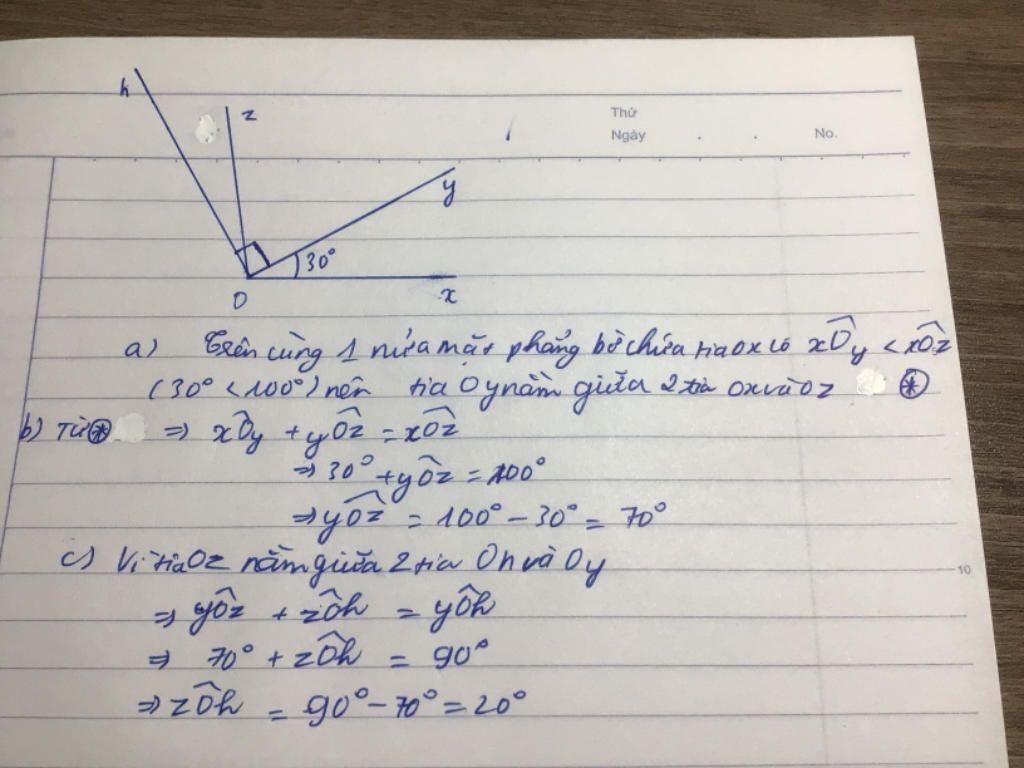 h
z
Thứ
Ngày . . No.
y
30°
O
x
a) Trên cùng 1 nửa mặt phẳng bờ chứa tia Ox có xÔy < xÔz
(30° < 100°) nên tia Oy nằm giữa 2 tia Ox và Oz (*)
b) Từ (*) ⇒ xÔy + yÔz = xÔz
⇒ 30° + yÔz = 100°
⇒ yÔz = 100° - 30° = 70°
c) Vì tia Oz nằm giữa 2 tia Oh và Oy
10
⇒ yÔz + zÔh = yÔh
⇒ 70° + zÔh = 90°
⇒ zÔh = 90° - 70° = 20°